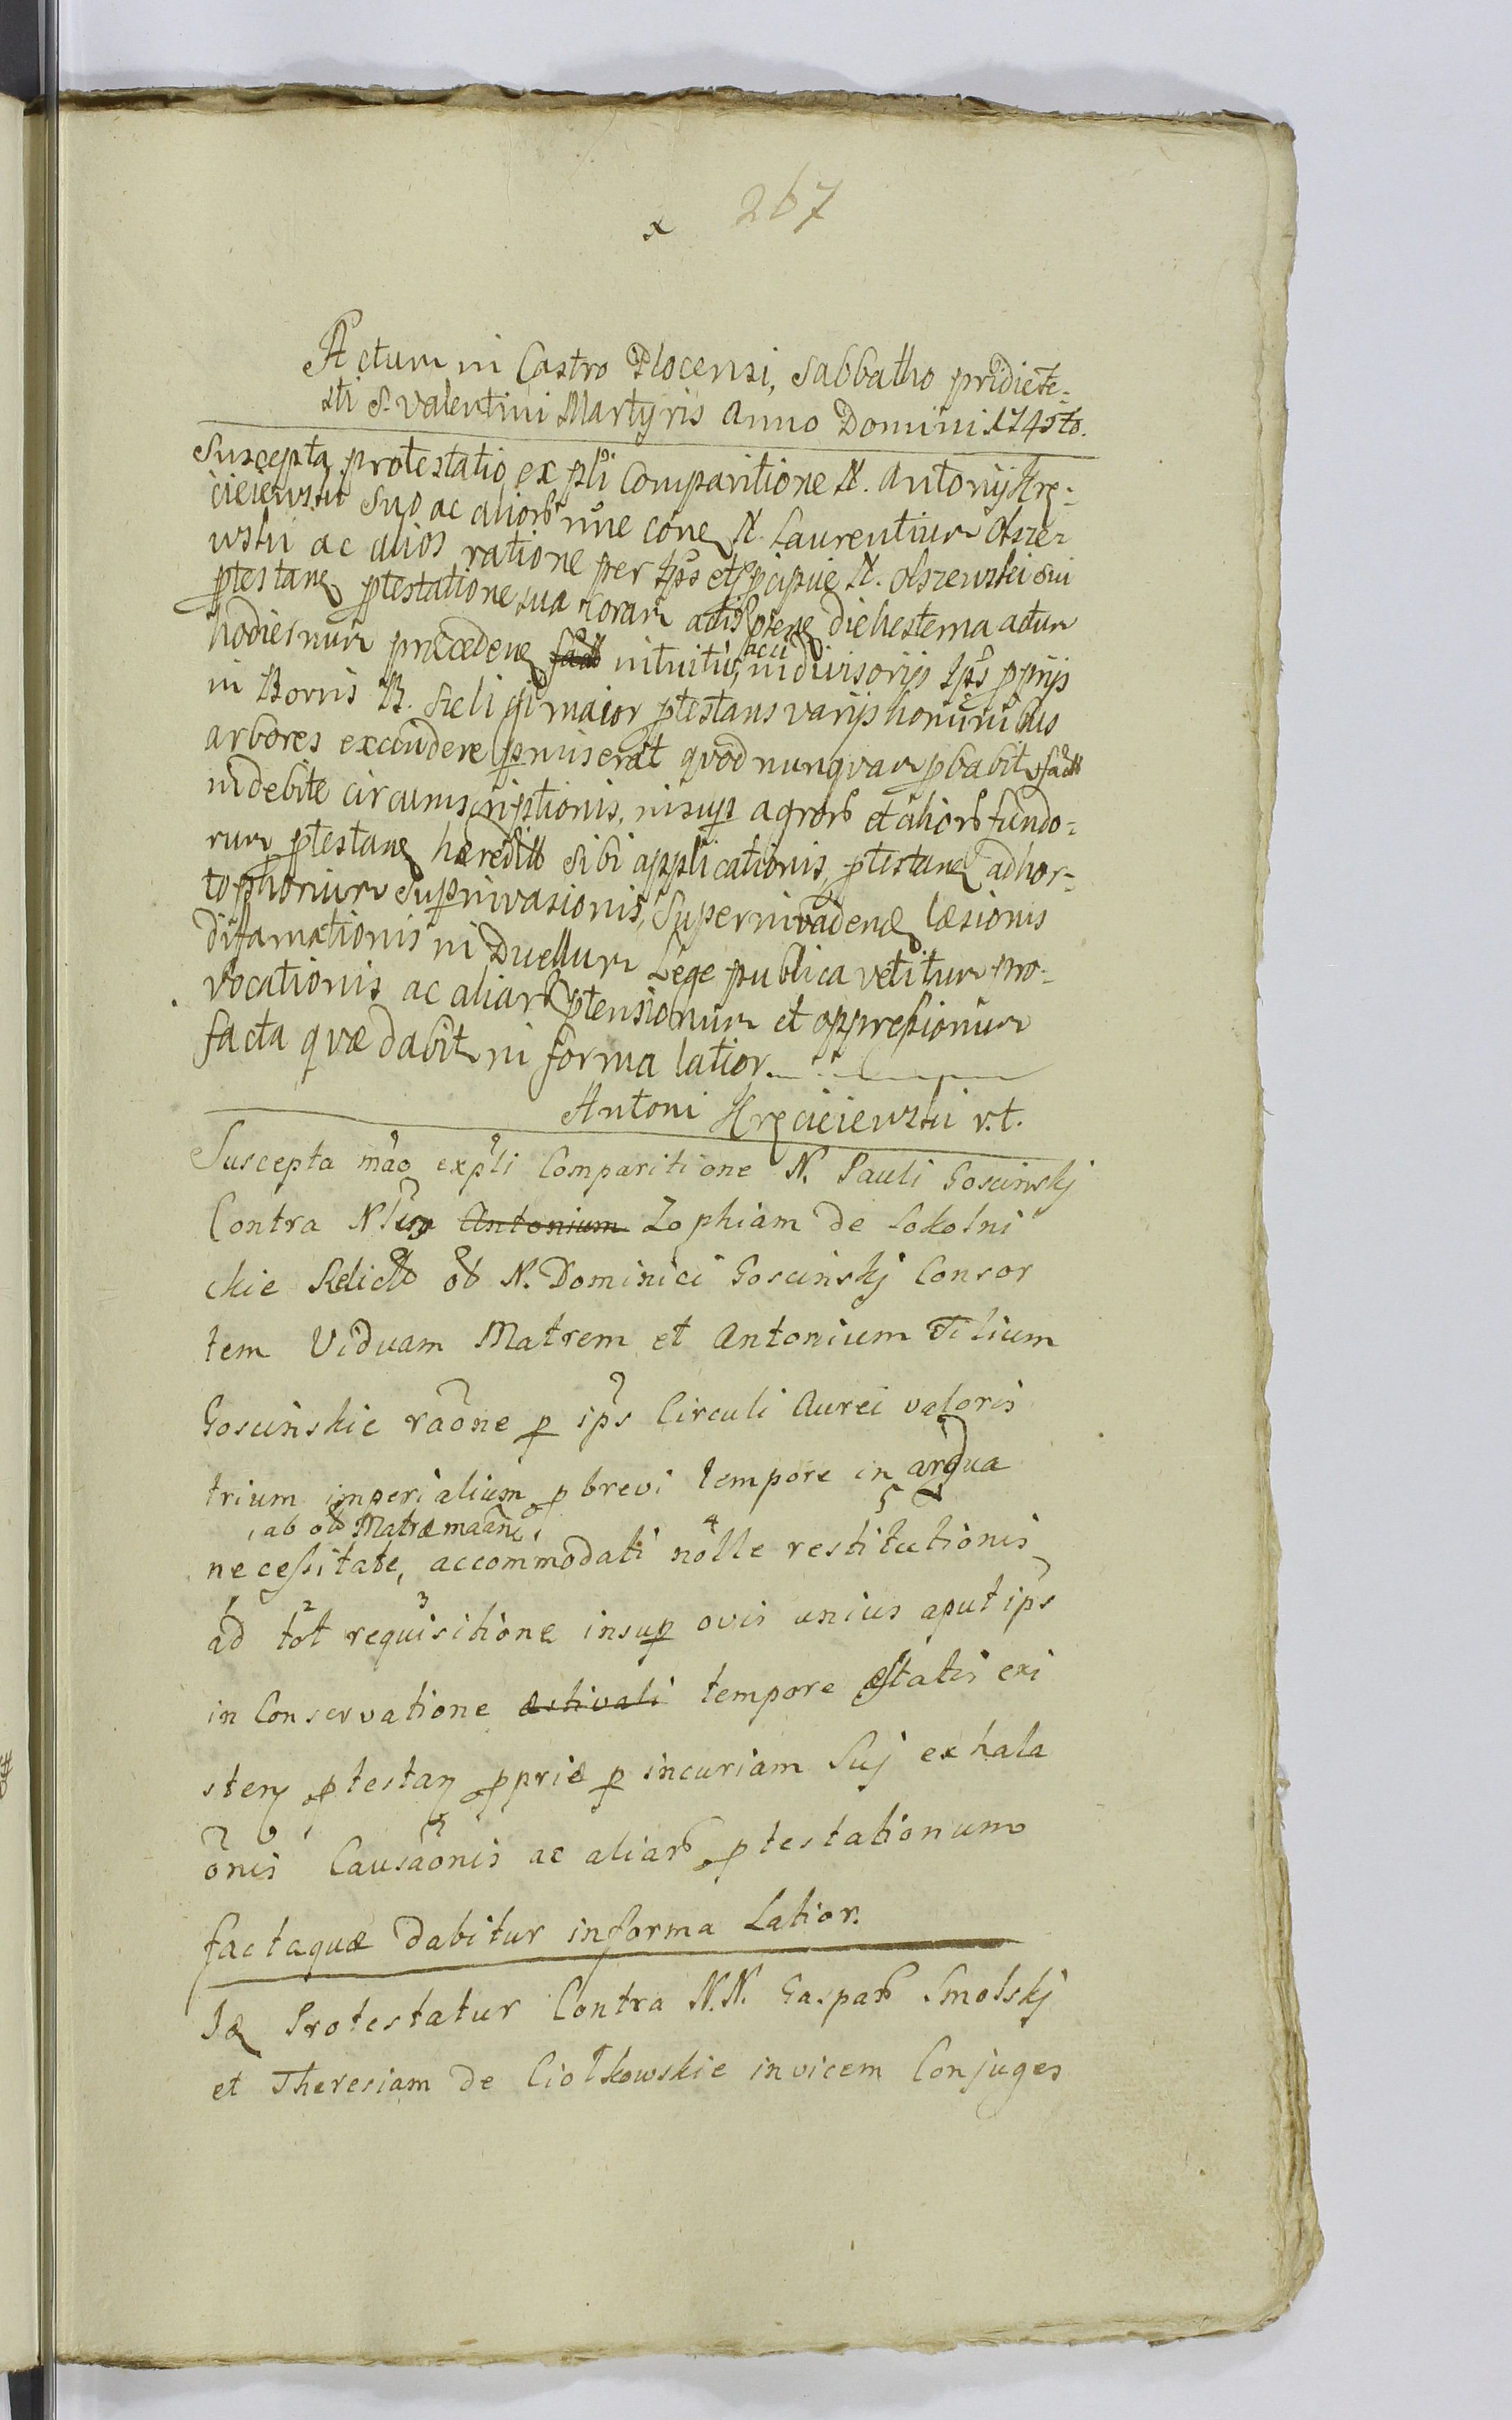 x 267
Actum in Castro Plocensi, Sabbatho pridie fe-
sti S. Valentini Martyris Anno Domini 1745to.
Suscepta protestatio ex płi Comparitione N. Antonij Krę-
ciciewski suo ac aliorb nne cone N. Laurentium Olsze-
wski ac alios ratione per Ipś et pcipue N. Olszewski sui
ptestanę ptestatione sua coram actis ptene die hesterna actum
hodiernum præcedenę intuitu, in divisorijs Ipś pprijs
in Borris B. Sieligi maior ptestans varijs hominibus
arbores excindere pmiserat quod nunqvam pbabit
indebite circumscriptionis, insup agrorb et aliorb fundo-
rum ptestanę hæredit sibi applicationis, ptestanę ad hor-
to phorium supinvasionis, superinvadenę læsionis
difamationis in Duellum Lege publica vetitum pro-
vocationis ac aliarb ptensionum et oppressionum
facta quæ dabit in forma latior.
Antoni Kręciciewski v.t.
Suscepta mao ex pli Comparitione N. Pauli Goscinskj
Contra N Antonium Zophiam de Sokolni
ckie Relict ob N. Dominici Goscinskj Consor
tem Viduam Matrem et Antonium Filium
Goscinskie raone p ips Circuli Aurei valoris
trium imperialium p brevi tempore in ardua
ab ob Matre
necessitate, accommodati nolle restitutionis
ad tot requisitione insup ovis unius aput ips
in Conservatione æstivali tempore æstatis exi
sten ptestan ppriæ p incuriam Suj exhala
onis Causaonis ac aliarb ptestationum
facta quæ dabitur in forma Latior.
Id Protestatur Contra N.N. Gasparb Smolskj
et Theresiam de Ciołkowskie invicem Conjuges